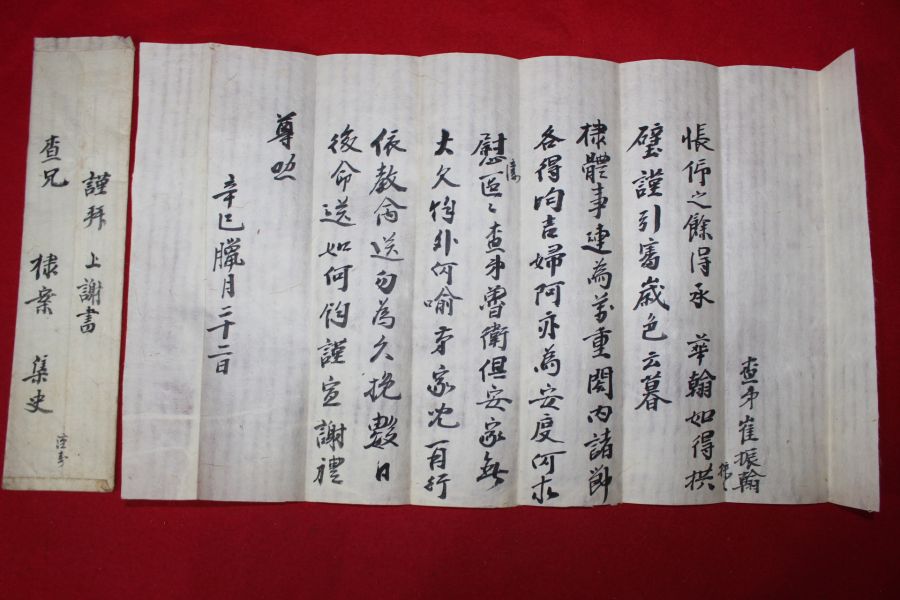 査弟崔振翰
悵仰之餘得承 華翰如得拱
璧謹引審歲色云暮
棣體事連為萬重閤內諸節
各得向吉婦阿亦為安度何求
慰區區査弟曾衛俱安家無
大欠何外何喻弟家
依教 送勿為久挽數日
後命送如何 謹宣謝禮
尊照
辛巳臘月二十二日
謹拜 上謝書
査兄 棣案 集史